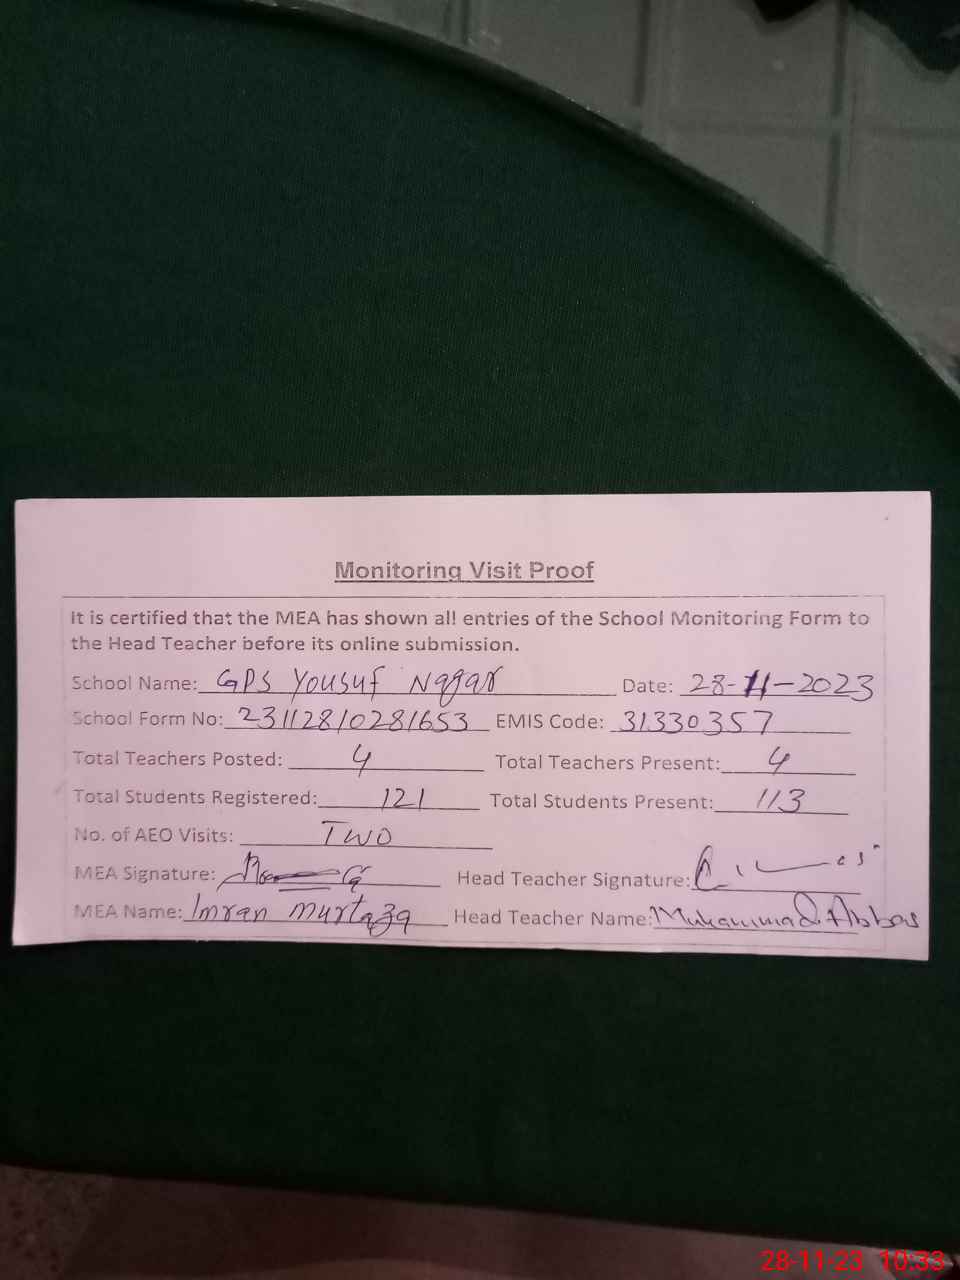 Monitoring Visit Proof
It is certified that the MEA has shown all entries of the School Monitoring Form to
the Head Teacher before its online submission.
School Name: GPS Yousuf Nagar Date: 28-11-2023
School Form No: 23112810281653 EMIS Code: 31330357
Total Teachers Posted: 4 Total Teachers Present: 4
Total Students Registered: 121 Total Students Present: 113
No. of AEO Visits: Two
MEA Signature: Head Teacher Signature:
MEA Name: Imran Murtaza Head Teacher Name: Muhammad Abbas
28-11-23 10:33